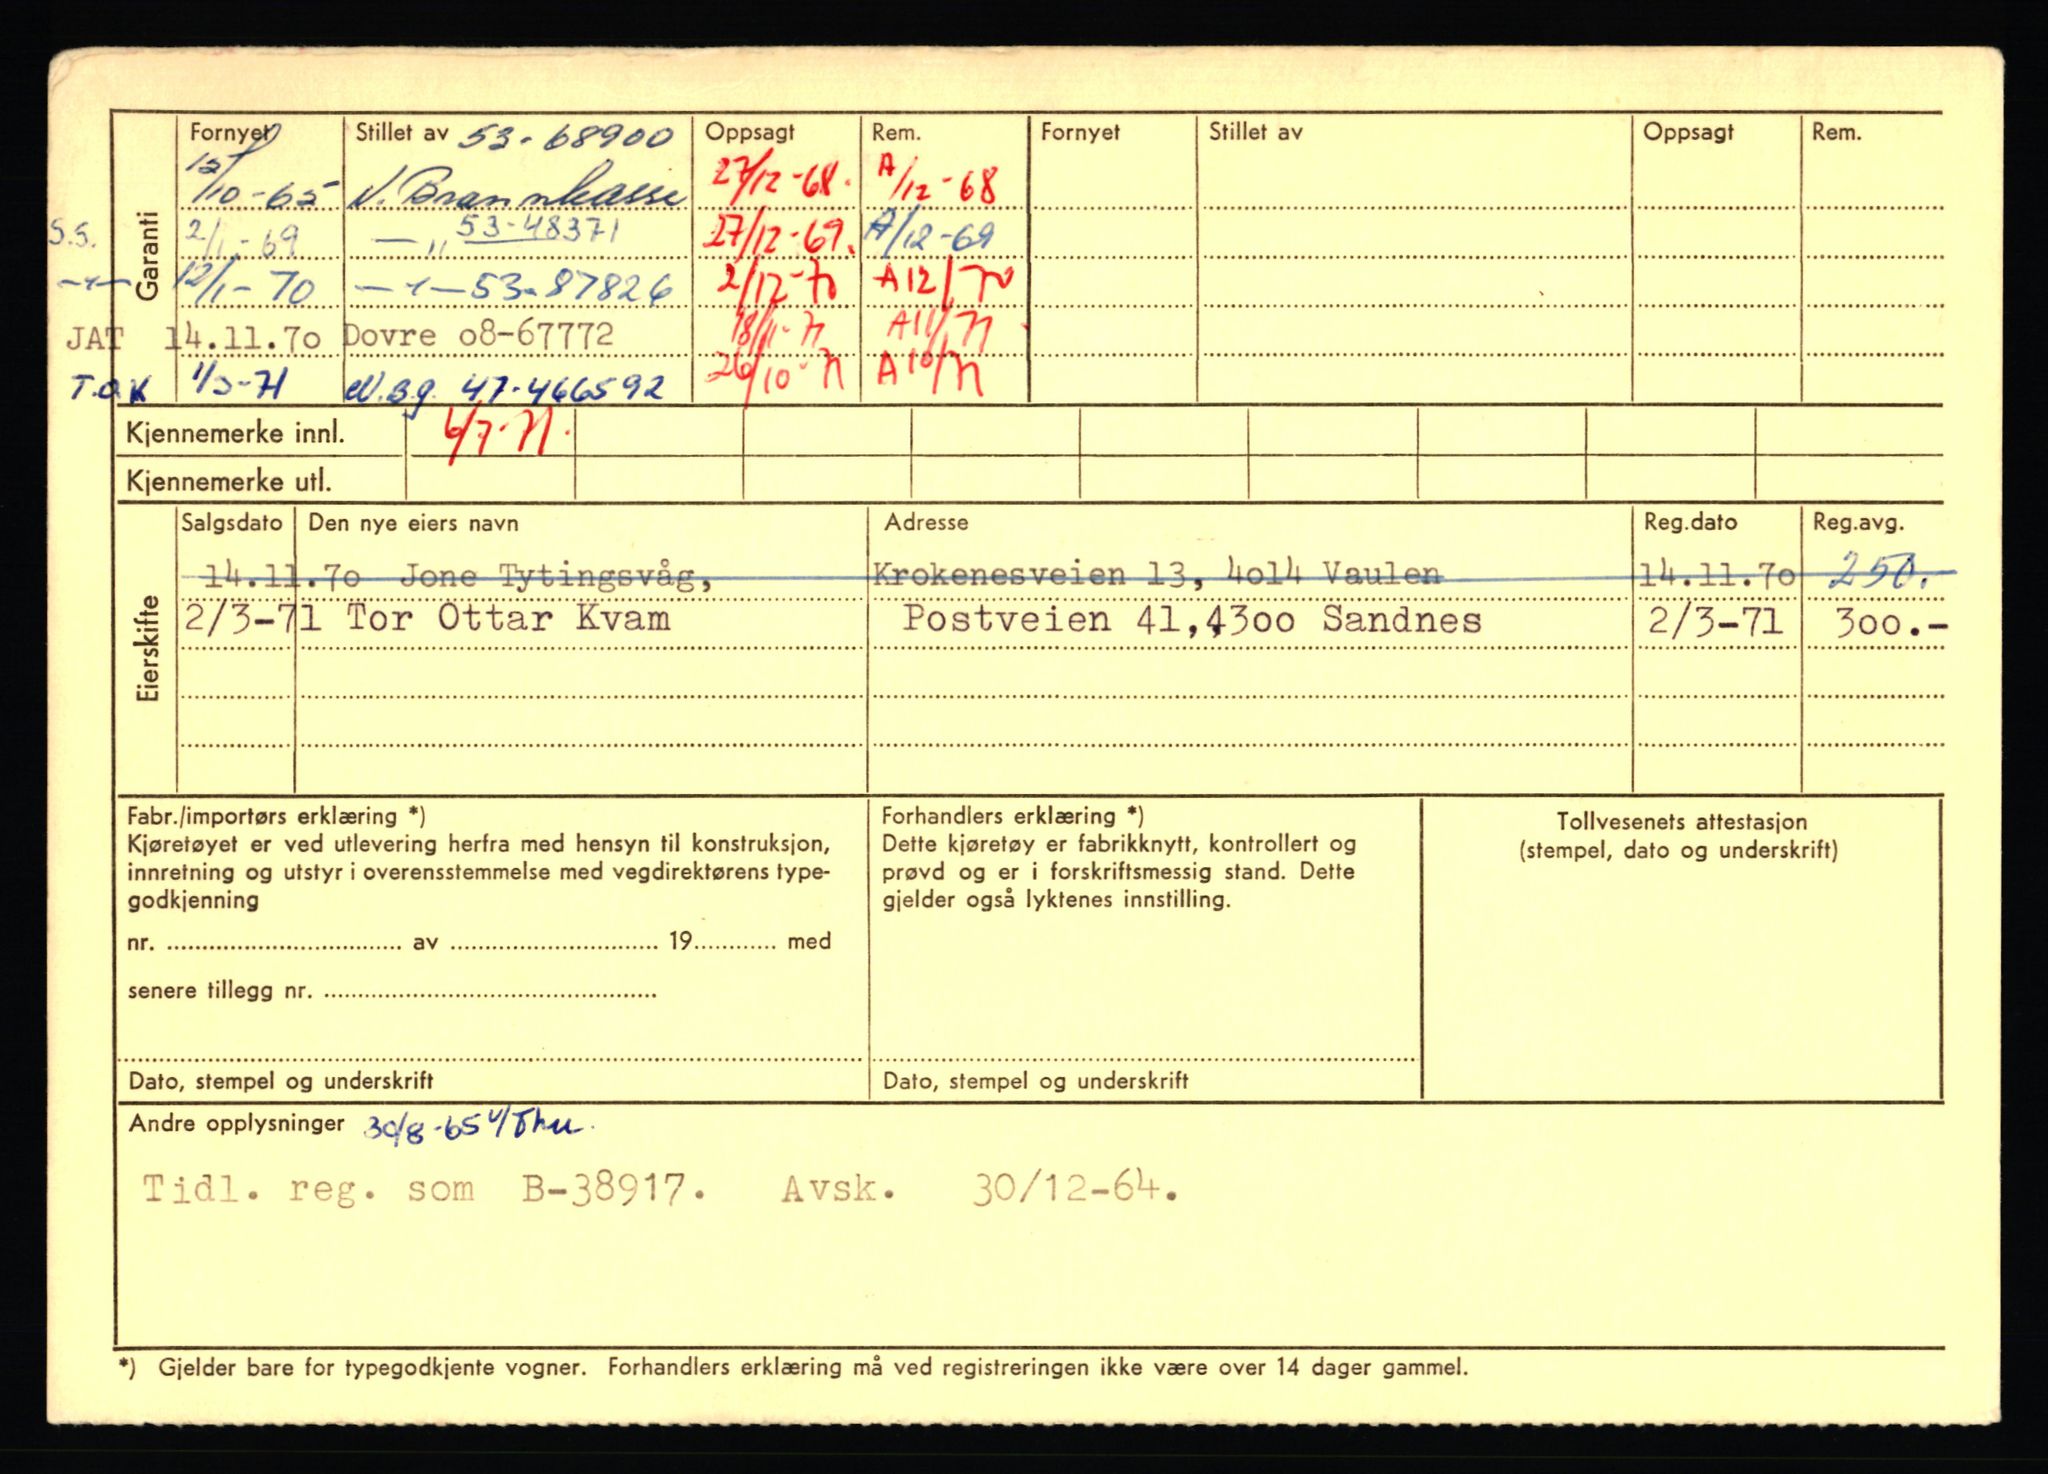 Garanti
Fornyet Stillet av 53-68900 Oppsagt Rem. Fornyet Stillet av Oppsagt Rem.
12/10-65 N. Brannkasse 27/12-68. A/12-68
S.S. 2/1-69 —„— 53-48371 27/12-69. A/12-69
—„— 12/1-70 —„— 53-87826 2/12-70 A12/70
JAT 14.11.7o Dovre o8-67772 18/11-71 A11/71
T.O.K 1/3-71 N.Bg. 47-466592 26/10-71 A10/71
Kjennemerke innl. 6/7-71.
Kjennemerke utl.
Eierskifte
Salgsdato Den nye eiers navn Adresse Reg.dato Reg.avg.
14.11.7o Jone Tytingsvåg, Krokenesveien 13, 4o14 Vaulen 14.11.7o 250.-
2/3-71 Tor Ottar Kvam Postveien 41, 43oo Sandnes 2/3-71 3oo.-
Fabr./importørs erklæring *)
Kjøretøyet er ved utlevering herfra med hensyn til konstruksjon,
innretning og utstyr i overensstemmelse med vegdirektørens type-
godkjenning
nr. .......... av .......... 19.......... med
senere tillegg nr. ..........
Dato, stempel og underskrift
Forhandlers erklæring *)
Dette kjøretøy er fabrikknytt, kontrollert og
prøvd og er i forskriftsmessig stand. Dette
gjelder også lyktenes innstilling.
Dato, stempel og underskrift
Tollvesenets attestasjon
(stempel, dato og underskrift)
Andre opplysninger 30/8-65
Tidl. reg. som B-38917. Avsk. 30/12-64.
*) Gjelder bare for typegodkjente vogner. Forhandlers erklæring må ved registreringen ikke være over 14 dager gammel.